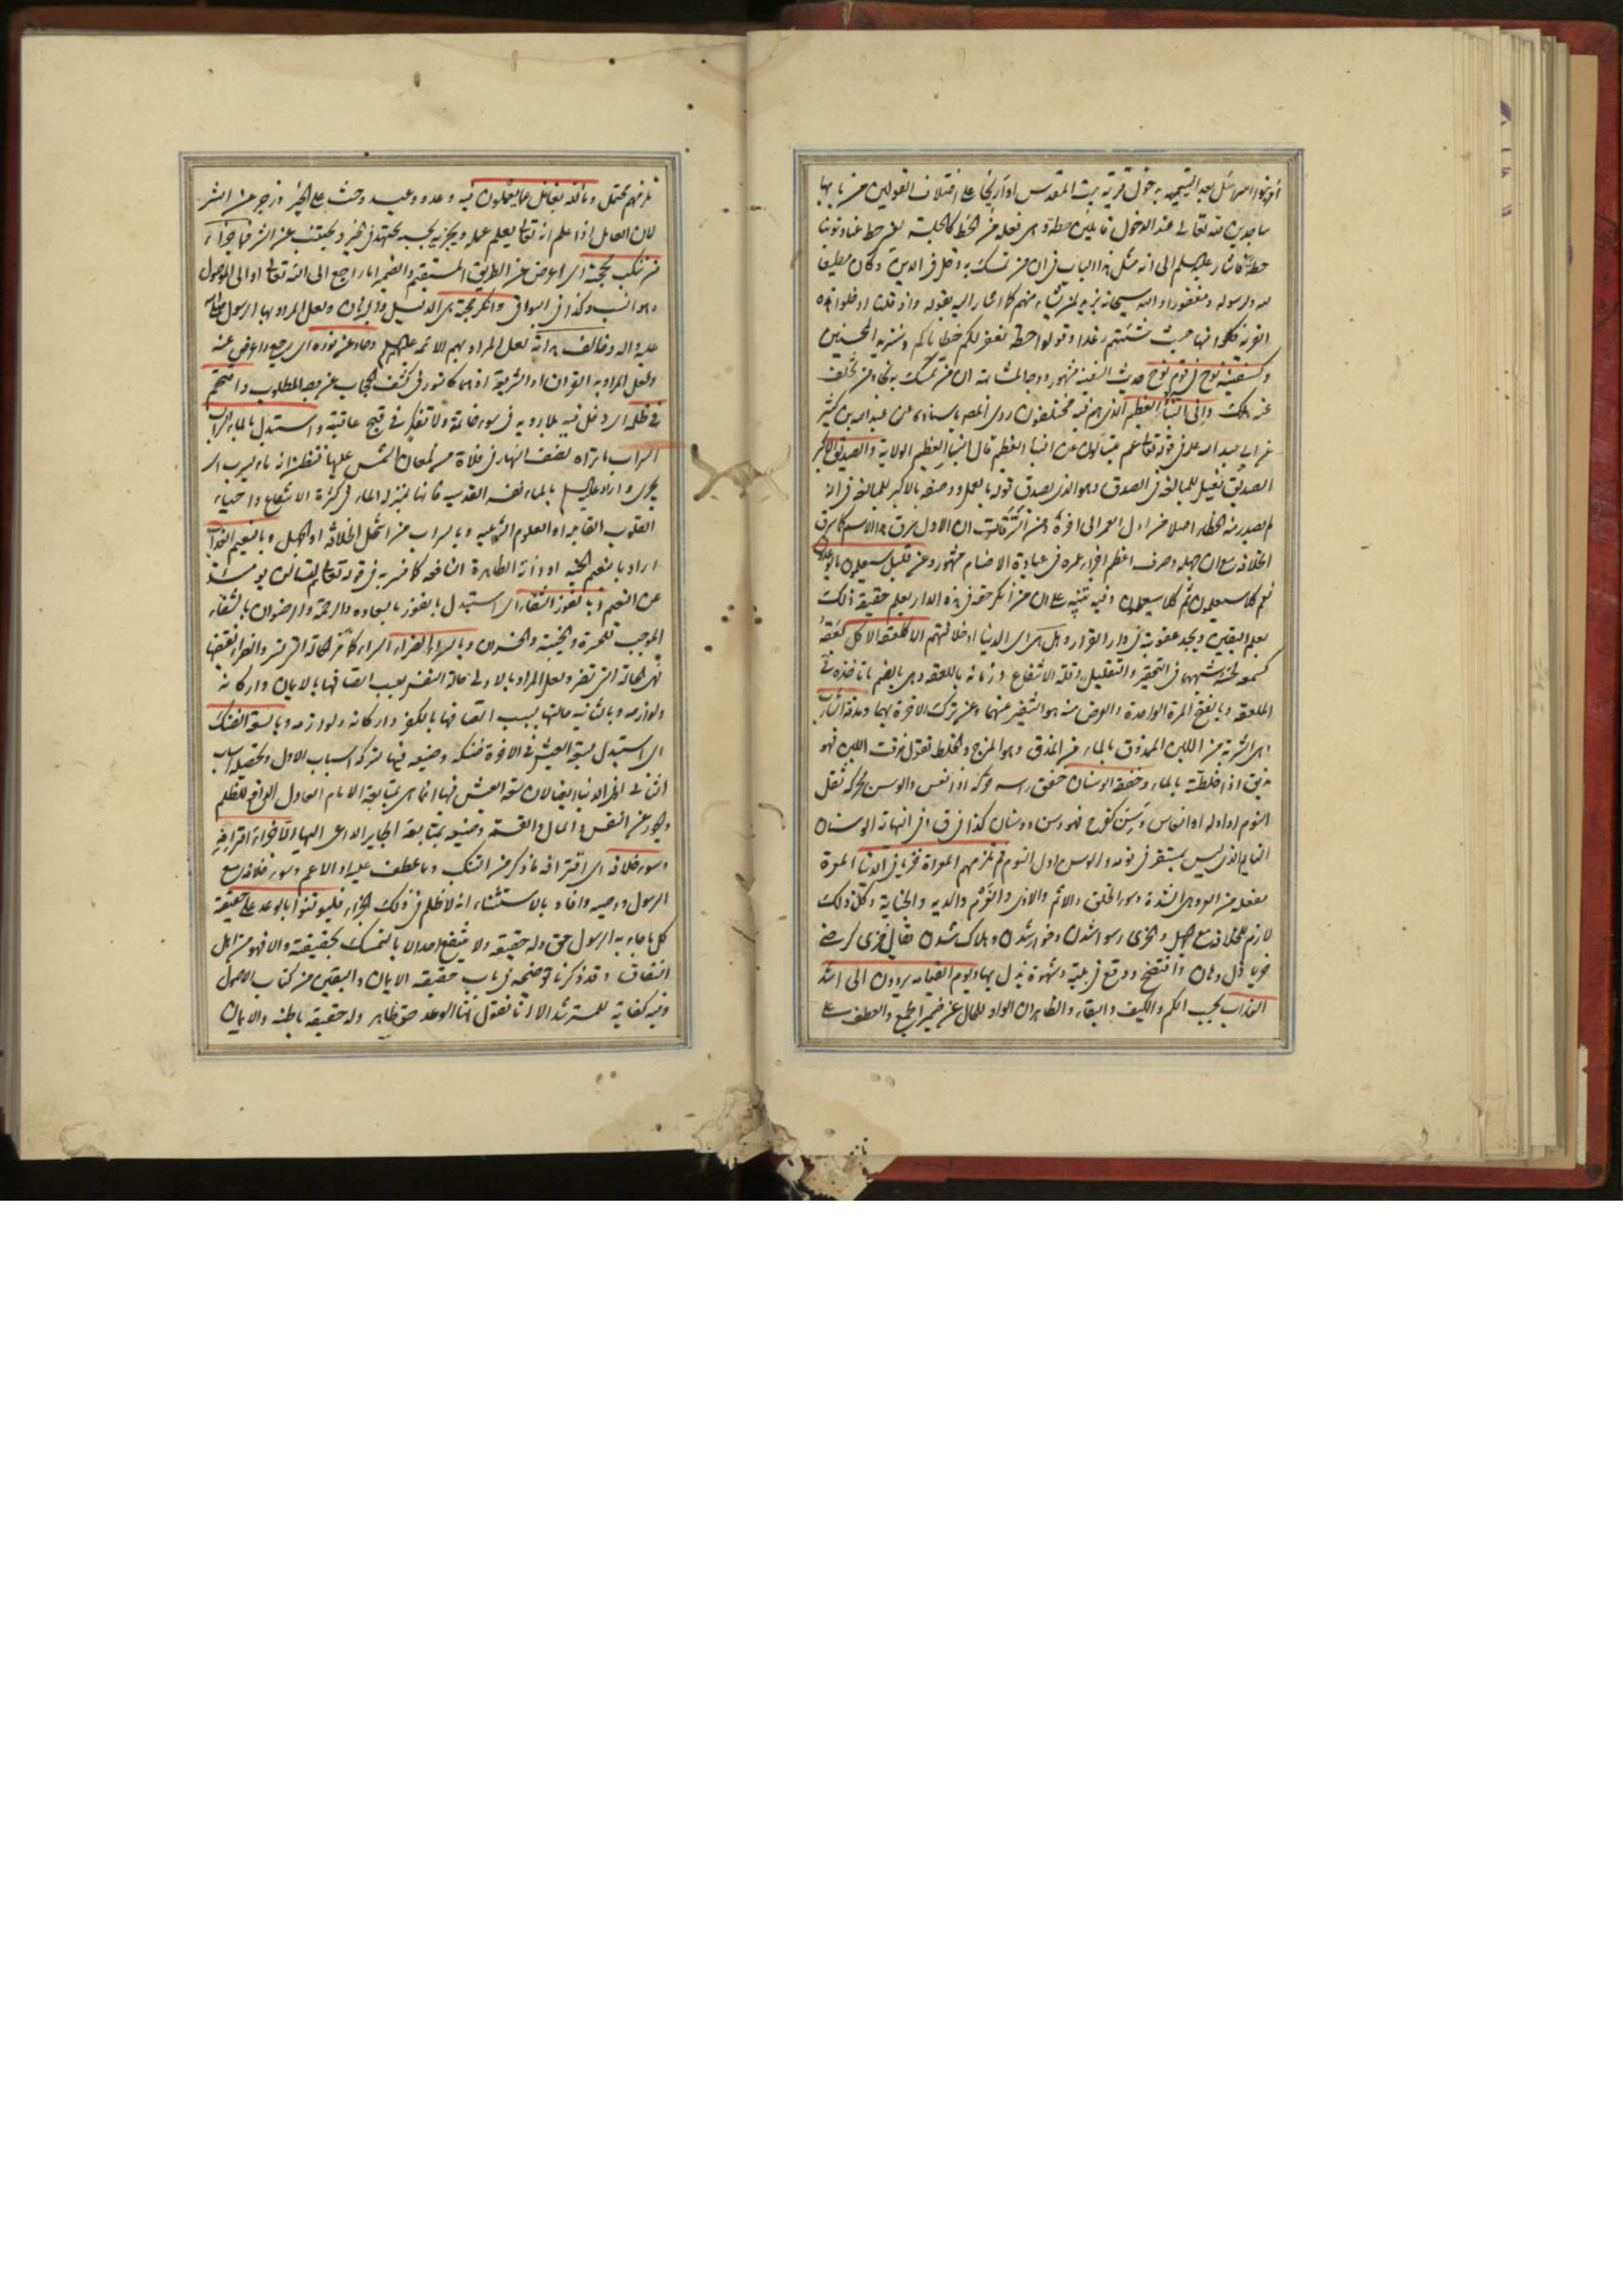 ساجدين لله تعالى عند الدخول قائلين حطة وهي فعلة من الحط كالجلسة يعني حط عنا ذنوبنا
حطة فأشار عليه السلم إلى أنه مثل هذا الباب في أن من تمسك به دخل في الدين وكان مطيعا
لله ولرسوله ومغفورا والله سبحانه يزيد لمن يشاء منهم كما أشار إليه بقوله وإذ قلنا ادخلوا هذه
القرية فكلوا منها حيث شئتم رغدا وقولوا حطة نغفر لكم خطاياكم وسنزيد المحسنين
وكسفينة نوح في قوم نوح حديث السفينة مشهور ووجه المشابهة أن من تمسك به نجا ومن تخلف
عنه هلك وإني النبأ العظيم الذي هم فيه مختلفون روى المصه باسناده عن عبد الله بن كثير
عن أبي عبد الله علم في قوله تعالى عم يتساءلون عن النبأ العظيم قال النبأ العظيم الولاية والصديق الأكبر
الصديق فعيل للمبالغة في الصدق وهو الذي يصدق قوله بالعمل ووصفه بالأكبر للمبالغة في أنه
لم يصدر منه الخطاء أصلا من أول العمر إلى آخره
الخلافة مع أن جهله وصرف أعظم أجزاء عمره في عبادة الأصنام مشهور وعن قليل سيعلمون ما يوعدون
نعم كلا سيعلمون ثم كلا سيعلمون وفيه تنبيه على أن من أنكر حقه في هذه الدار يعلم حقيقة ذلك
بعلم اليقين ويجد عقوبته في دار القرار وهل هي أي الدنيا أو خلافتهم إلا كلعقة الآكل
الملعقة وبالفتح المرة الواحدة والغرض منه هو التنفير عنهما وعن ترك الآخرة بهما ومذقة الشارب
وهي الشربة من اللبن الممذوق بالماء من المذق وهو المزج والخلط تقول مذقت اللبن فهو
مذيق إذا خلطته بالماء وخفقة الوسنان خفق رأسه حركه إذا نعس والوسن محركة ثقل
النوم أو أوله أو النعاس وسن كفرح فهو وسن ووسنان كذا في ق وفي النهاية الوسنان
النائم الذي ليس بمستغرق في نومه والوسن أول النوم ثم تلزمهم المعرات خزيا في الدنيا المعرة
مفعلة من العر وهي الشدة وسوء الخلق والإثم والأذى والغرم والدية والجناية وكل ذلك
لازم للخلافة مع الجهل والخزي رسوا شدن وخوار شدن وهلاك شدن يقال خزي كرضي
خزيا ذل وهان وافتضح ووقع في بلية وشهوة فذل بها ويوم القيامة يردون إلى أشد
العذاب بحسب الكم والكيف والبقاء والظاهر أن الواو للحال عن ضمير الجمع والعطف على
تلزمهم محتمل وما الله بغافل عما يعملون فيه وعد ووعيد وحث على الخير وزجر عن الشر
لأن العامل إذا علم أنه تعالى يعلم عمله ويجزيه بحسبه يجتهد في الخير ويجتنب عن الشر فما جزاء
من تنكب محجته أي أعرض عن الطريق المستقيم والضمير إما راجع إلى الله تعالى أو إلى الموصول
وهو أنسب وكذا في البواقي وأنكر حجته هي الدليل والبرهان ولعل المراد بها الرسول صلى الله
عليه وآله وخالف هداته لعل المراد بهم الأئمة عليهم السلم وحاد عن نوره أي رجع وأعرض عنه
ولعل المراد به القرآن أو الشريعة إذ هما كالنور في كشف الحجاب عن وجه المطلوب واقتحم
في ظلمه أي دخل فيه بلا روية في سوء خاتمته ولا تفكر في قبح عاقبته واستبدل بالماء السراب
السراب ما تراه نصف النهار في فلاة من لمعان الشمس عليها فتظن أنه ماء يسرب أي
يجري وأراد عليه السلم بالماء نفسه القدسية فإنها بمنزلة الماء في كثرة الانتفاع وإحياء
القلوب القابلة أو العلوم الشرعية وبالسراب من انتحل الخلافة أو الجهل وبالنعيم العذاب
أراد بالنعيم الجنة أو ذاته الطاهرة النافعة كما فسر به في قوله تعالى لتسألن يومئذ
عن النعيم وبالفوز الشقاء أي استبدل بالفوز بالسعادة والرحمة والرضوان بالشقاء
الموجب للحسرة والخيبة والخسران وبالسراء الضراء السراء كالحالة التي تسر والضراء نقيضها
فهي الحالة التي تضر ولعل المراد بالأولى حالة النفس بسبب اتصافها بالإيمان وأركانه
ولوازمه وبالثانية حالتها بسبب اتصافها بالكفر وأركانه ولوازمه وبالسعة الضنك
أي استبدل بسعة العيش في الآخرة ضنكه وضيقه فيها بتركه أسباب الأول وتحصيله أسباب
الثاني أو في الدنيا أيضا لأن سعة العيش فيها إنما هي بمتابعة الإمام العادل الرافع للظلم
والجور عن النفس والمال والقسمة وضيقه بمتابعة الجاير الداعي إليها إلا جزاء اقترافه
وسوء خلافه أي اقترافه ما ذكر من التنكب وما عطف عليه أو الأعم وسوء خلافه مع
الرسول ووصيه وأفاد بالاستثناء أنه لا ظلم في ذلك الجزاء فليوقنوا بالوعد على حقيقته
كل ما جاء به الرسول حق وله حقيقة ولا ينتفع أحد إلا بالتمسك بحقيقته وإلا فهو من أهل
النفاق وقد ذكرنا توضيحه في باب حقيقة الإيمان واليقين من كتاب الأصول
وفيه كفاية للمسترشد إلا أنا نقول هنا الوعد حق ظاهر وله حقيقة باطنة والإيمان